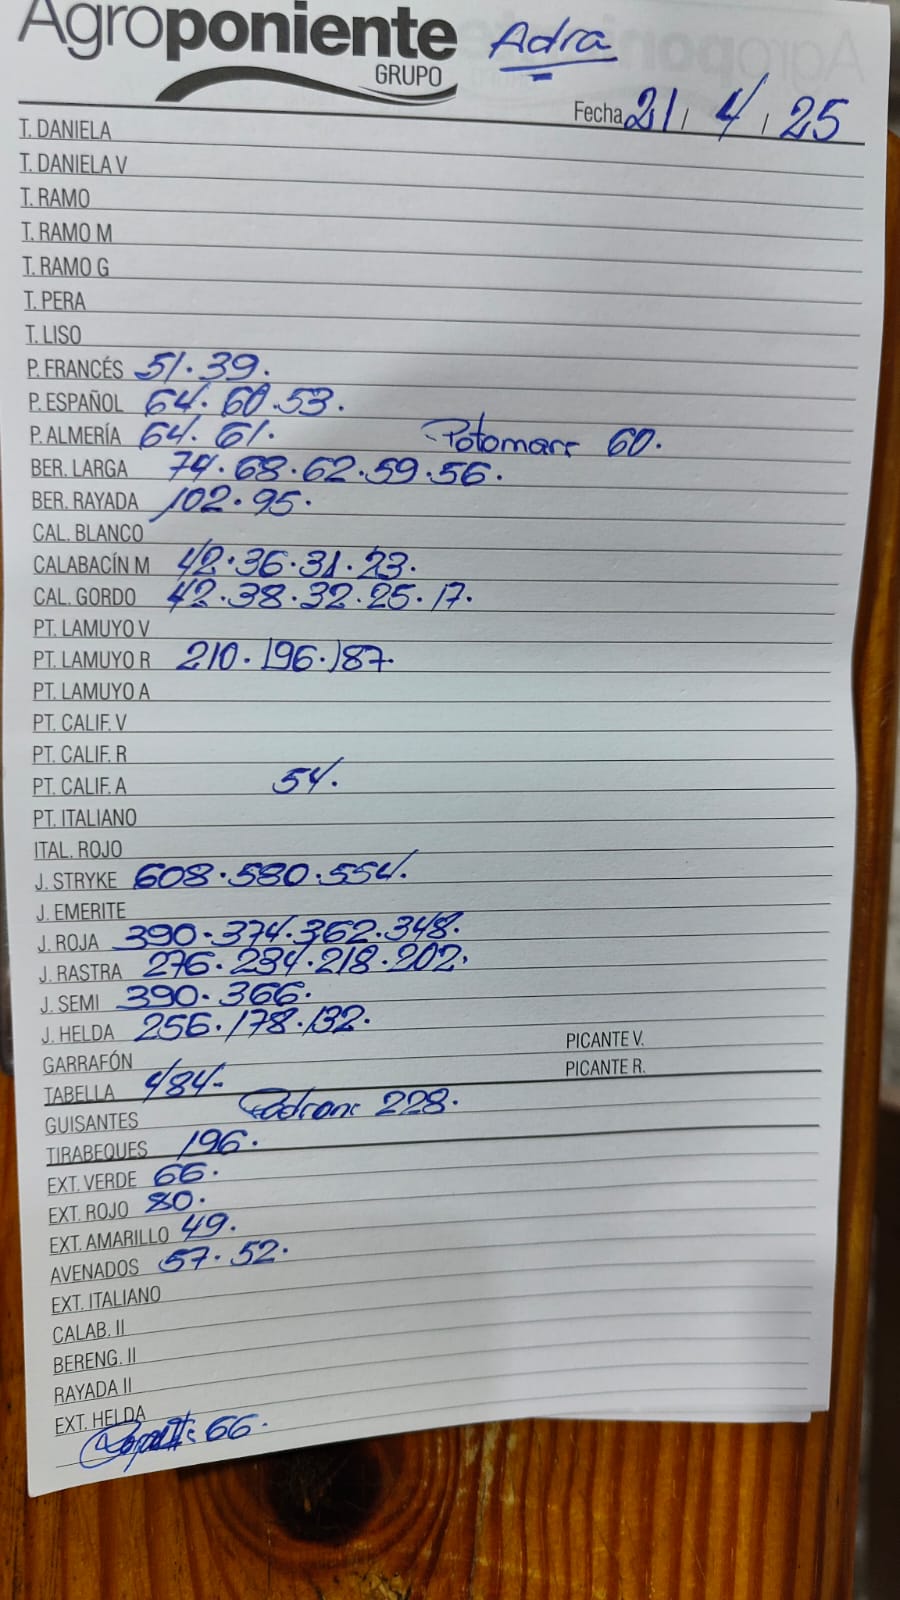 Agroponiente Adra
GRUPO
Fecha 21 / 4 / 25
T. DANIELA
T. DANIELA V
T. RAMO
T. RAMO M
T. RAMO G
T. PERA
T. LISO
P. FRANCÉS 51. 39.
P. ESPAÑOL 64. 60. 53.
P. ALMERÍA 64. 61. 60.
BER. LARGA 74. 68. 62. 59. 56.
BER. RAYADA 102. 95.
CAL. BLANCO
CALABACÍN M 42. 36. 31. 23.
CAL. GORDO 42. 38. 32. 25. 17.
PT. LAMUYO V
PT. LAMUYO R 210. 196. 187.
PT. LAMUYO A
PT. CALIF. V
PT. CALIF. R
PT. CALIF. A 54.
PT. ITALIANO
ITAL. ROJO
J. STRYKE 608. 580. 554.
J. EMERITE
J. ROJA 390. 374. 362. 348.
J. RASTRA 276. 234. 218. 202.
J. SEMI 390. 366.
J. HELDA 256. 178. 132.
GARRAFÓN PICANTE V.
TABELLA 484- PICANTE R.
GUISANTES Padron: 228.
TIRABEQUES 196.
EXT. VERDE 66.
EXT. ROJO 80.
EXT. AMARILLO 49.
AVENADOS 57. 52.
EXT. ITALIANO
CALAB. II
BERENG. II
RAYADA II
EXT. HELDA
66.